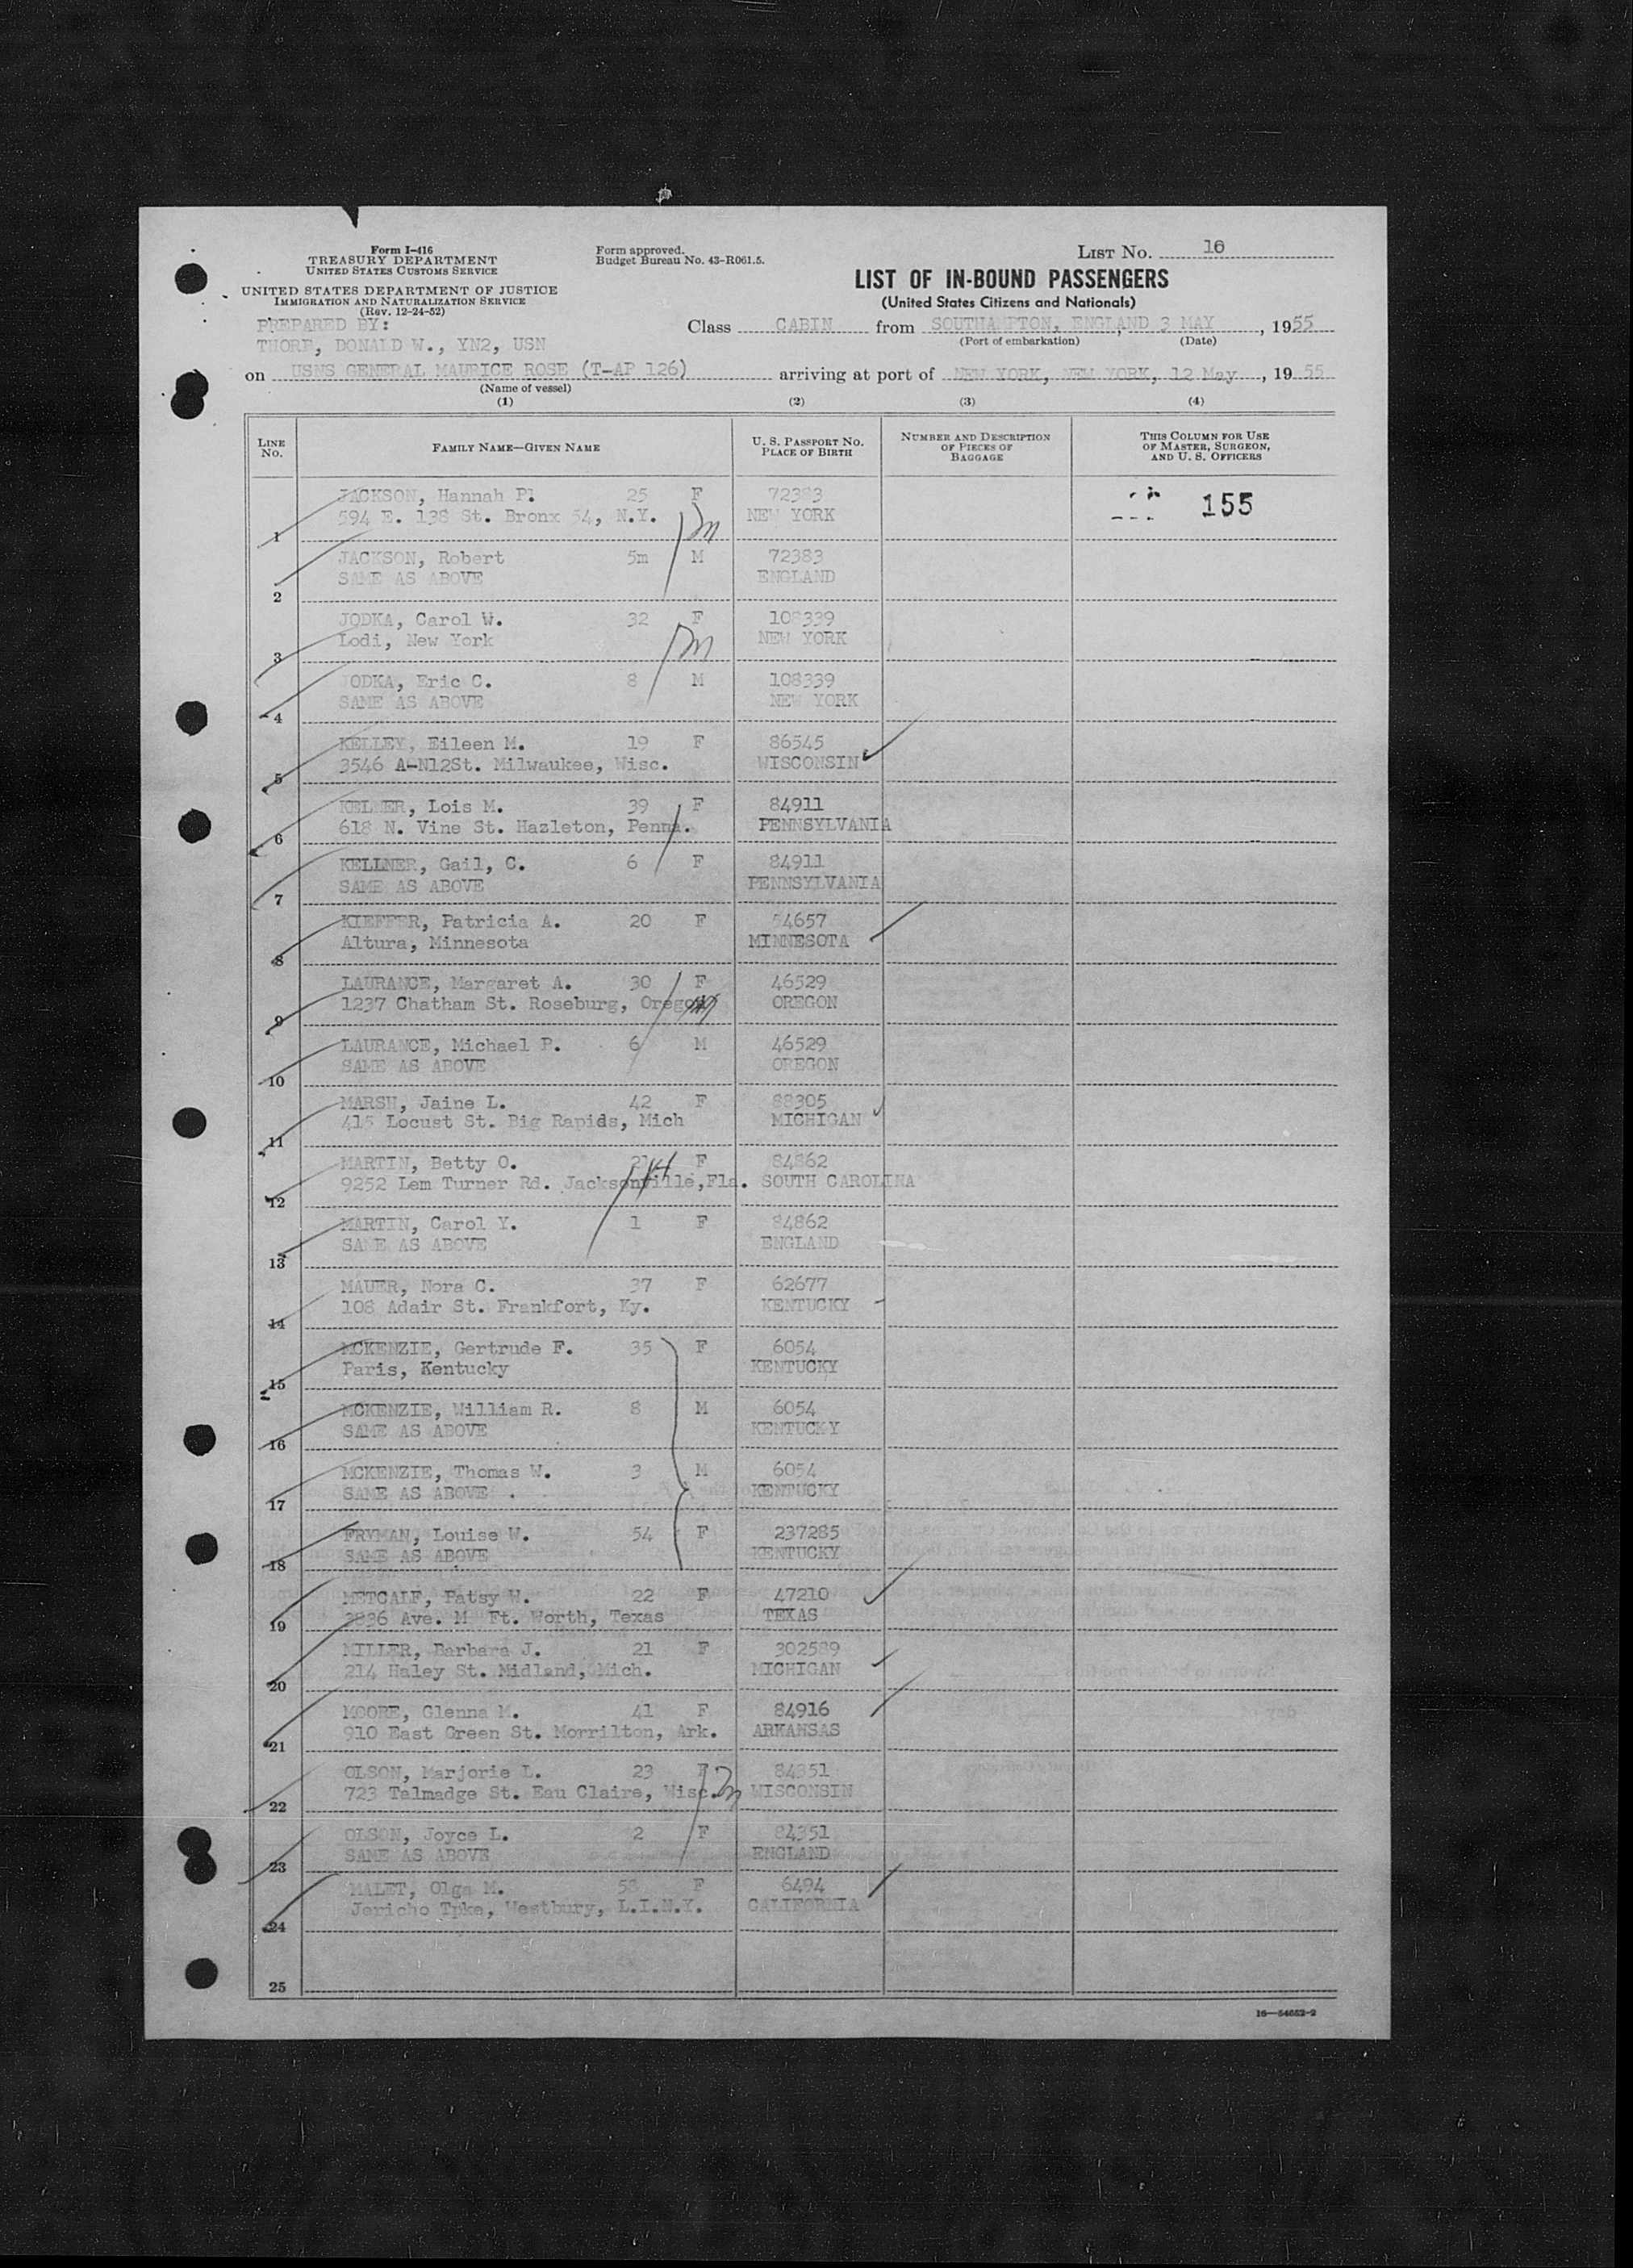 Form I-416
TREASURY DEPARTMENT
UNITED STATES CUSTOMS SERVICE
UNITED STATES DEPARTMENT OF JUSTICE
IMMIGRATION AND NATURALIZATION SERVICE
(Rev. 12-24-52)
Form approved.
Budget Bureau No. 43-R061.5.
LIST NO. 16
LIST OF IN-BOUND PASSENGERS
(United States Citizens and Nationals)
PREPARED BY:
THORP, DONALD W., YN2, USN
Class CABIN from SOUTHAMPTON, ENGLAND, 3 MAY, 1955
(Port of embarkation) (Date)
on USNS GENERAL MAURICE ROSE (T-AP 126) arriving at port of NEW YORK, NEW YORK, 12 May, 1955
(Name of vessel)
(1) (2) (3) (4)
LINE NO. FAMILY NAME—GIVEN NAME U. S. PASSPORT NO. PLACE OF BIRTH NUMBER AND DESCRIPTION OF PIECES OF BAGGAGE THIS COLUMN FOR USE OF MASTER, SURGEON, AND U. S. OFFICERS
JACKSON, Hannah P. 25 F 72383 155
1 594 E. 138 St. Bronx 54, N.Y. NEW YORK
JACKSON, Robert 5m M 72383
2 SAME AS ABOVE ENGLAND
JODKA, Carol W. 32 F 108339
3 Lodi, New York NEW YORK
JODKA, Eric C. 8 M 108339
4 SAME AS ABOVE NEW YORK
KELLEY, Eileen M. 19 F 86545
5 3546 A-N12St. Milwaukee, Wisc. WISCONSIN
Lois M. 39 F 84911
6 618 N. Vine St. Hazleton, Penna. PENNSYLVANIA
KELLNER, Gail, C. 6 F 84911
7 SAME AS ABOVE PENNSYLVANIA
KIEFFER, Patricia A. 20 F 54657
8 Altura, Minnesota MINNESOTA
LAURANCE, Margaret A. 30 F 46529
9 1237 Chatham St. Roseburg, Oregon OREGON
LAURANCE, Michael P. 6 M 46529
10 SAME AS ABOVE OREGON
MARSH, Jaine L. 42 F 88305
11 415 Locust St. Big Rapids, Mich MICHIGAN
MARTIN, Betty O. F 84862
12 9252 Lem Turner Rd. Jacksonville,Fla. SOUTH CAROLINA
MARTIN, Carol Y. 1 F 84862
13 SAME AS ABOVE ENGLAND
MAUER, Nora C. 37 F 62677
14 108 Adair St. Frankfort, Ky. KENTUCKY
MCKENZIE, Gertrude F. 35 F 6054
15 Paris, Kentucky KENTUCKY
MCKENZIE, William R. 8 M 6054
16 SAME AS ABOVE KENTUCKY
MCKENZIE, Thomas W. 3 M 6054
17 SAME AS ABOVE KENTUCKY
FRYMAN, Louise W. 54 F 237285
18 SAME AS ABOVE KENTUCKY
METCALF, Patsy W. 22 F 47210
19 3836 Ave. M Ft. Worth, Texas TEXAS
MILLER, Barbara J. 21 F 302589
20 214 Haley St. Midland, Mich. MICHIGAN
MOORE, Glenna M. 41 F 84916
21 910 East Green St. Morrilton, Ark. ARKANSAS
OLSON, Marjorie L. 23 F 84351
22 723 Talmadge St. Eau Claire, Wisc. WISCONSIN
OLSON, Joyce L. 2 F 84351
23 SAME AS ABOVE ENGLAND
MALET, Olga M. 58 F 6494
24 Jericho Tpke, Westbury, L.I.N.Y. CALIFORNIA
25
16—54652-2